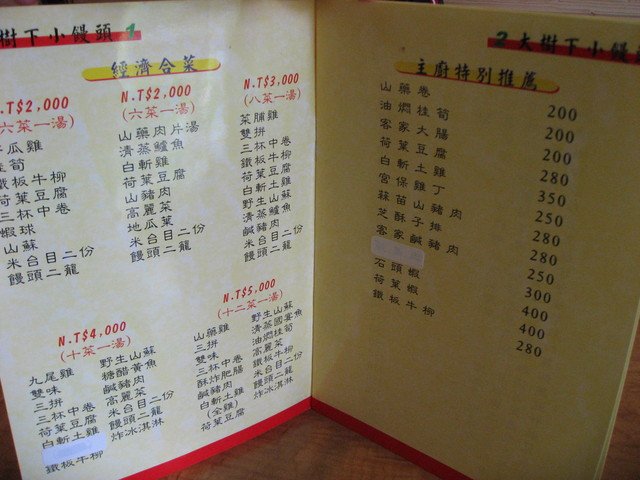 樹下小饅頭 1
經濟合菜
.T$2,000
六菜一湯)
瓜雞
桂筍
鐵板牛柳
荷葉豆腐
三杯中卷
蝦球
山蘇
米台目二份
饅頭二籠
N.T$2,000
(六菜一湯)
山藥肉片湯
清蒸鱸魚
白斬雞
荷葉豆腐
山豬肉
高麗菜
地瓜葉
米台目二份
饅頭二籠
N.T$3,000
(八菜一湯)
菜脯雞
雙拼
三杯中卷
鐵板牛柳
荷葉豆腐
白斬土雞
野生山蘇
清蒸鱸魚
鹹豬肉
米台目二份
饅頭二籠
N.T$4,000
(十菜一湯)
九尾雞
雙味
三拼
三杯中卷
荷葉豆腐
白斬土雞
鐵板牛柳
野生山蘇
糖醋黃魚
鹹豬肉
高麗菜
米台目二份
饅頭二籠
炸冰淇淋
N.T$5,000
(十二菜一湯)
山藥雞
三拼
雙味
三杯中卷
酥炸肥腸
鹹豬肉
白斬土雞
(全雞)
荷葉豆腐
野生山蘇
清蒸國宴魚
油燜桂筍
高麗菜
鐵板牛柳
米台目二份
饅頭二籠
炸冰淇淋
2 大樹下小饅
主廚特別推薦
山藥卷 200
油燜桂筍 200
客家大腸 200
荷葉豆腐 280
白斬土雞 350
宮保雞丁 250
蒜苗山豬肉 280
芝酥子排 280
客家鹹豬肉 250
300
石頭蝦 400
荷葉蝦 400
鐵板牛柳 280